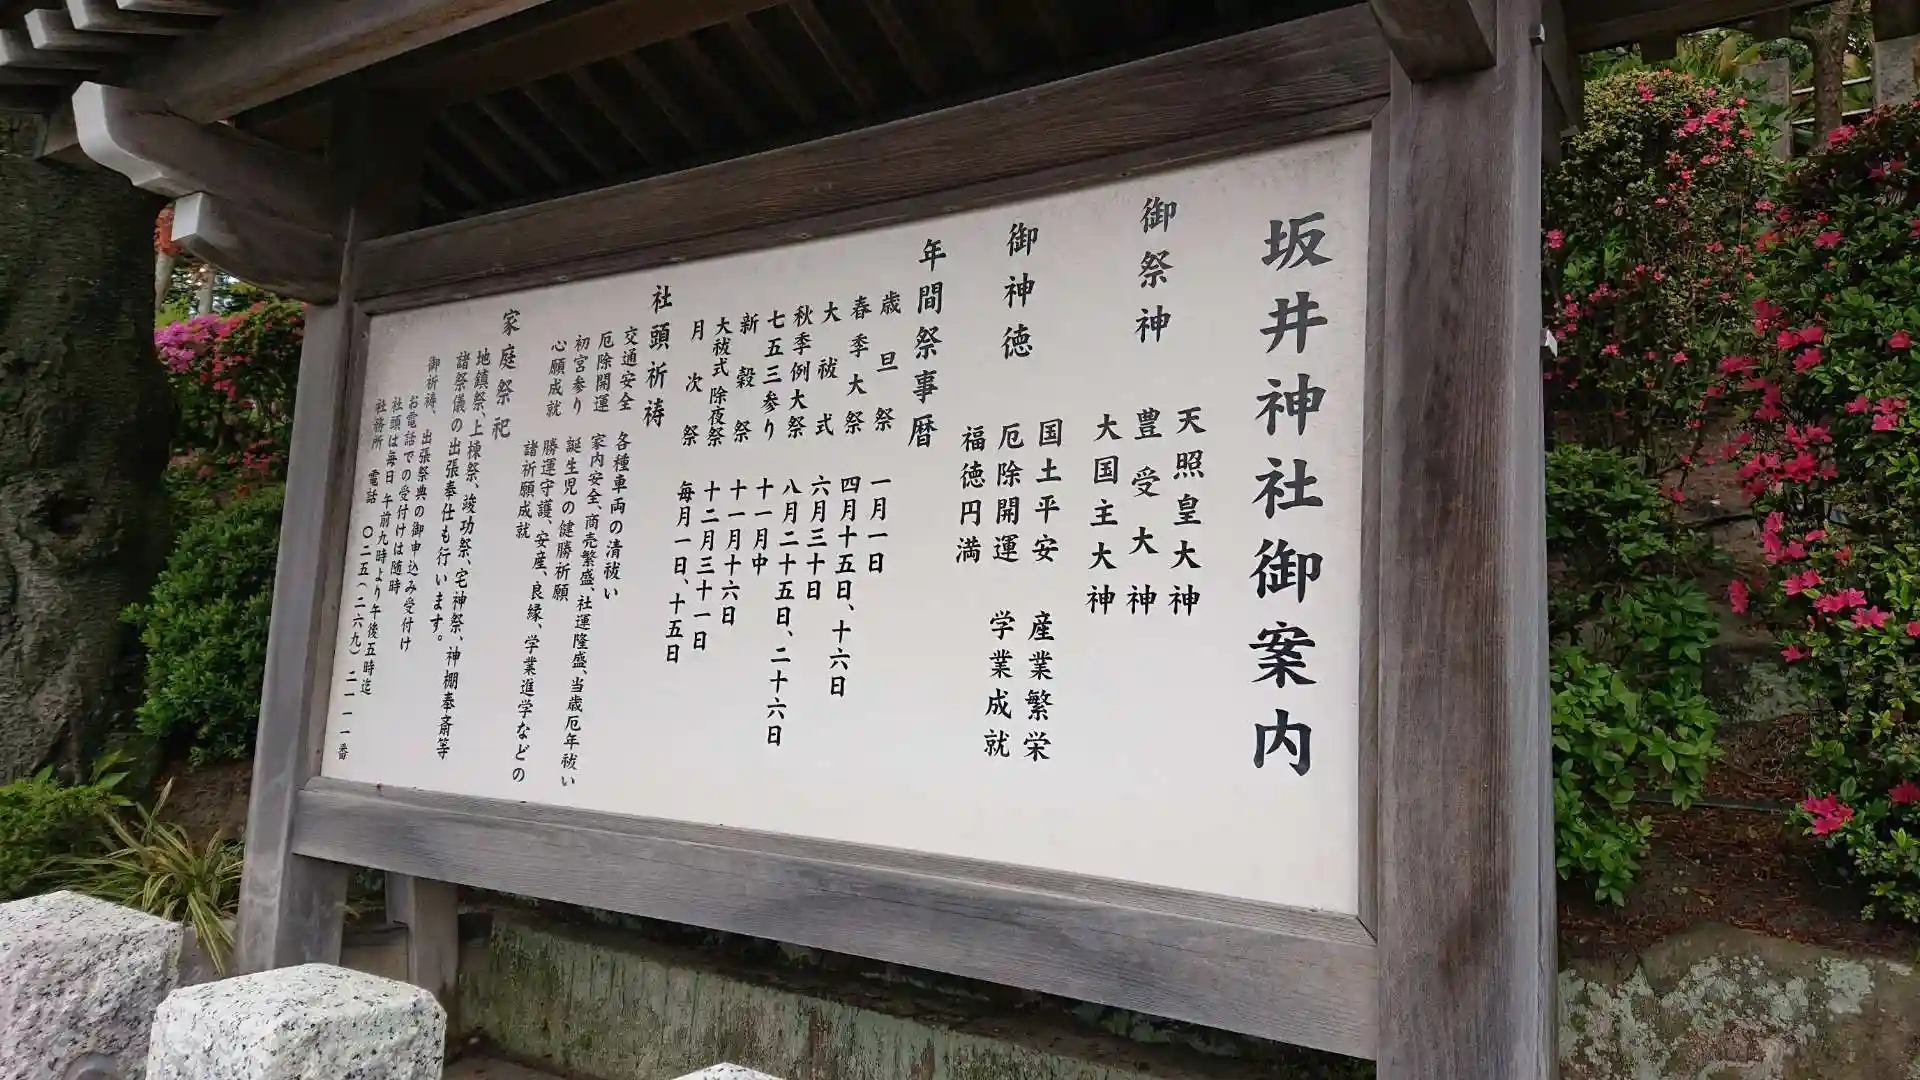 坂井神社御案内
御祭神
天照皇大神
豊受大神
大国主大神
御神徳
国土平安 産業繁栄
厄除開運 学業成就
福徳円満
年間祭事暦
歳旦祭 一月一日
春季大祭 四月十五日、十六日
大祓式 六月三十日
秋季例大祭 八月二十五日、二十六日
七五三参り 十一月中
新穀祭 十一月十六日
大祓式除夜祭 十二月三十一日
月次祭 毎月一日、十五日
社頭祈祷
交通安全 各種車両の清祓い
厄除開運 家内安全、商売繁盛、社運隆盛、当歳厄年祓い
初宮参り 誕生児の健勝祈願
心願成就 勝運守護、安産、良縁、学業進学などの
諸祈願成就
家庭祭祀
地鎮祭、上棟祭、竣功祭、宅神祭、神棚奉斎等
諸祭儀の出張奉仕も行います。
御祈祷、出張祭典の御申込み受付け
お電話での受付けは随時
社頭は毎日 午前九時より午後五時迄
社務所 電話 〇二五(二六九)二一一一番